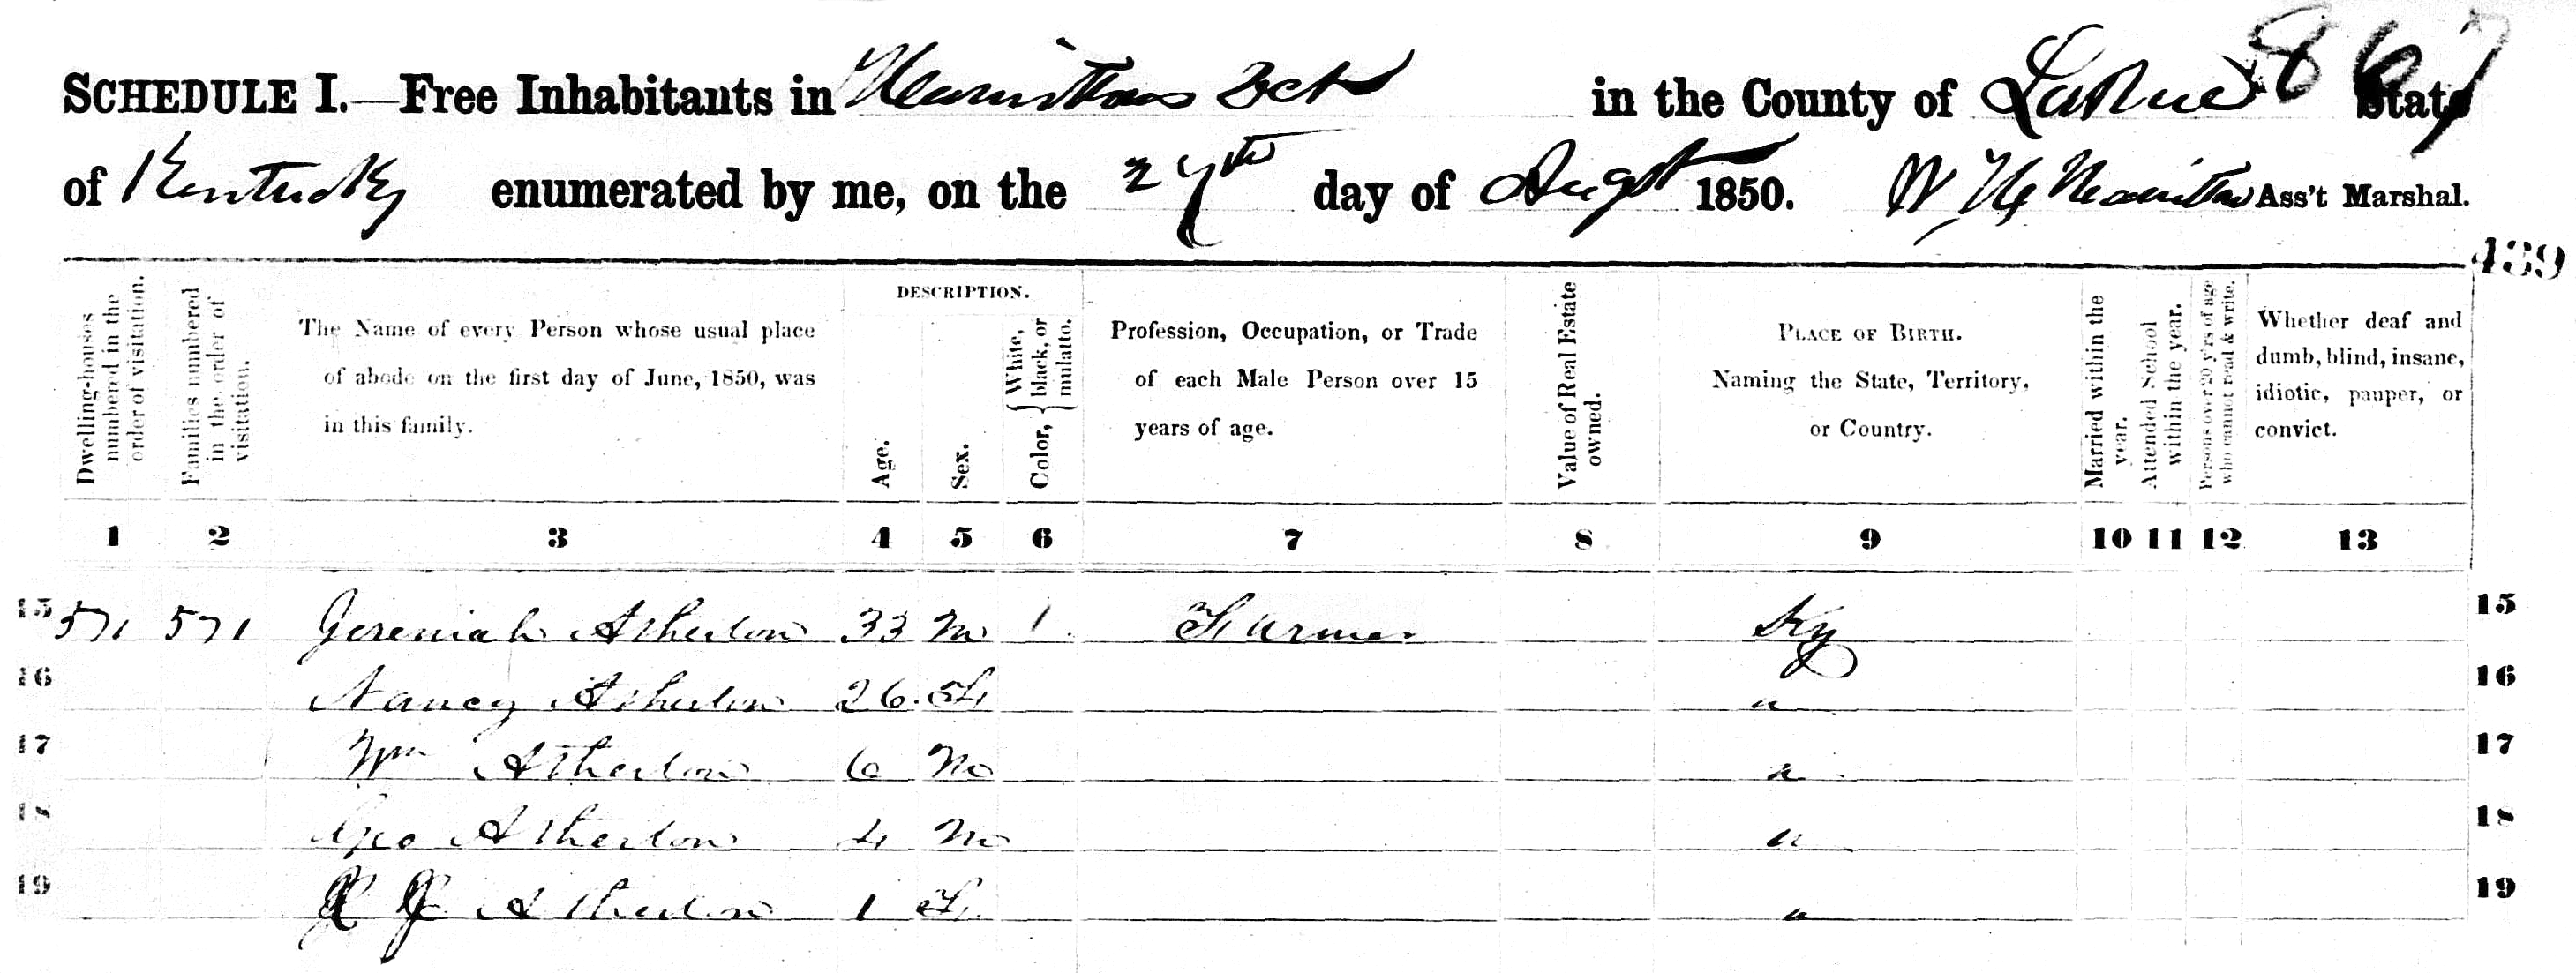 867
SCHEDULE I.—Free Inhabitants in Hamiltons Dct in the County of LaRue State
of Kentucky enumerated by me, on the 27th day of Augst 1850. W H Hamilton Ass't Marshal.
439
Dwelling-houses numbered in the order of visitation.
Families numbered in the order of visitation.
The Name of every Person whose usual place
of abode on the first day of June, 1850, was
in this family.
DESCRIPTION.
Age.
Sex.
Color, { White, black, or mulatto.
Profession, Occupation, or Trade
of each Male Person over 15
years of age.
Value of Real Estate owned.
PLACE OF BIRTH.
Naming the State, Territory,
or Country.
Married within the year.
Attended School within the year.
Persons over 20 y'rs of age who cannot read & write.
Whether deaf and
dumb, blind, insane,
idiotic, pauper, or
convict.
1 2 3 4 5 6 7 8 9 10 11 12 13
15 571 571 Jeremiah Atherton 33 M 1 Farmer Ky 15
16 Nancy Atherton 26 F " 16
17 Wm Atherton 6 M " 17
18 Geo Atherton 4 M " 18
19 Atherton 1 F " 19